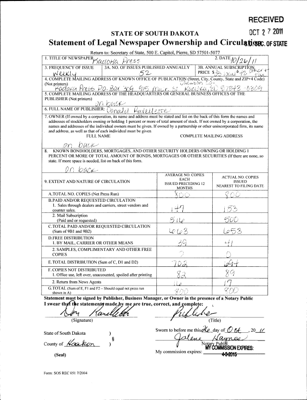 RECEIVED
OCT 27 2011
SEC. OF STATE
STATE OF SOUTH DAKOTA
Statement of Legal Newspaper Ownership and Circulation
Return to: Secretary of State, 500 E. Capitol, Pierre, SD 57501-5077
1. TITLE OF NEWSPAPER
2. DATE
10/26/11
3. FREQUENCY OF ISSUE
Weekly
3A. NO. OF ISSUES PUBLISHED ANNUALLY
52
3B. ANNUAL SUBSCRIPTION PRICE
4. COMPLETE MAILING ADDRESS OF KNOWN OFFICE OF PUBLICATION (Street, City, County, State and ZIP+4 Code)
(Not printers)
5. COMPLETE MAILING ADDRESS OF THE HEADQUARTERS OF GENERAL BUSINESS OFFICES OF THE
PUBLISHER (Not printers)
on back
6. FULL NAME OF PUBLISHER:
7. OWNER (If owned by a corporation, its name and address must be stated and list on the back of this form the names and
addresses of stockholders owning or holding 1 percent or more of total amount of stock. If not owned by a corporation, the
names and addresses of the individual owners must be given. If owned by a partnership or other unincorporated firm, its name
and address, as well as that of each individual must be given
FULL NAME COMPLETE MAILING ADDRESS
on back
8. KNOWN BONDHOLDERS, MORTGAGES, AND OTHER SECURITY HOLDERS OWNING OR HOLDING 1
PERCENT OR MORE TOTAL AMOUNT OF BONDS, MORTGAGES OR OTHER SECURITIES (If there are none, so
state. If more space is needed, list on back of this form.
on back
9. EXTENT AND NATURE OF CIRCULATION
AVERAGE NO. COPIES EACH ISSUED PRECEDING 12 MONTHS
ACTUAL NO. COPIES ISSUED NEAREST TO FILING DATE
A. TOTAL NO. COPIES (Net Press Run)
800
800
B. PAID AND/OR REQUESTED CIRCULATION
1. Sales through dealers and carriers, street vendors and counter sales.
147
153
2. Mail Subscription
(Paid and/or requested)
516
500
C. TOTAL PAID AND/OR REQUESTED CIRCULATION
(Sum of 9B1 and 9B2)
D. FREE DISTRIBUTION
1. BY MAIL, CARRIER OR OTHER MEANS
41
2. SAMPLES, COMPLIMENTARY AND OTHER FREE COPIES
E. TOTAL DISTRIBUTION (Sum of C, D1 and D2)
702
F. COPIES NOT DISTRIBUTED
1. Office use, left over, unaccounted, spoiled after printing
82
89
2. Return from News Agents
16
17
G. TOTAL (Sum of E, F1 and F2 – Should equal net press run shown in A)
800
800
Statement must be signed by Publisher, Business Manager, or Owner in the presence of a Notary Public
I swear that the statements made by me are true, correct, and complete:
Publisher
(Signature) (Title)
State of South Dakota )
County of )
(Seal)
Sworn to before me this 26 day of Oct. 20 11
Notary Public
MY COMMISSION EXPIRES
My commission expires: